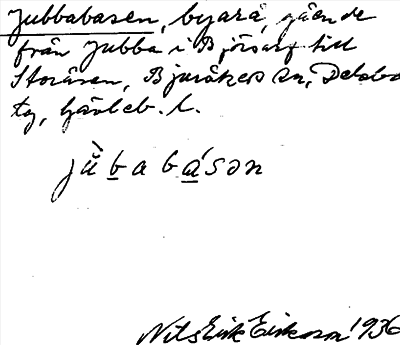 Jubbabasen, byarå, gående
från Jubba i Bjørsarf till
Storåsen, Bjuråkers sn, Delsbo
tg, Gävleb. l.
jǜbabásən
Nils Erik Eriksson 1936